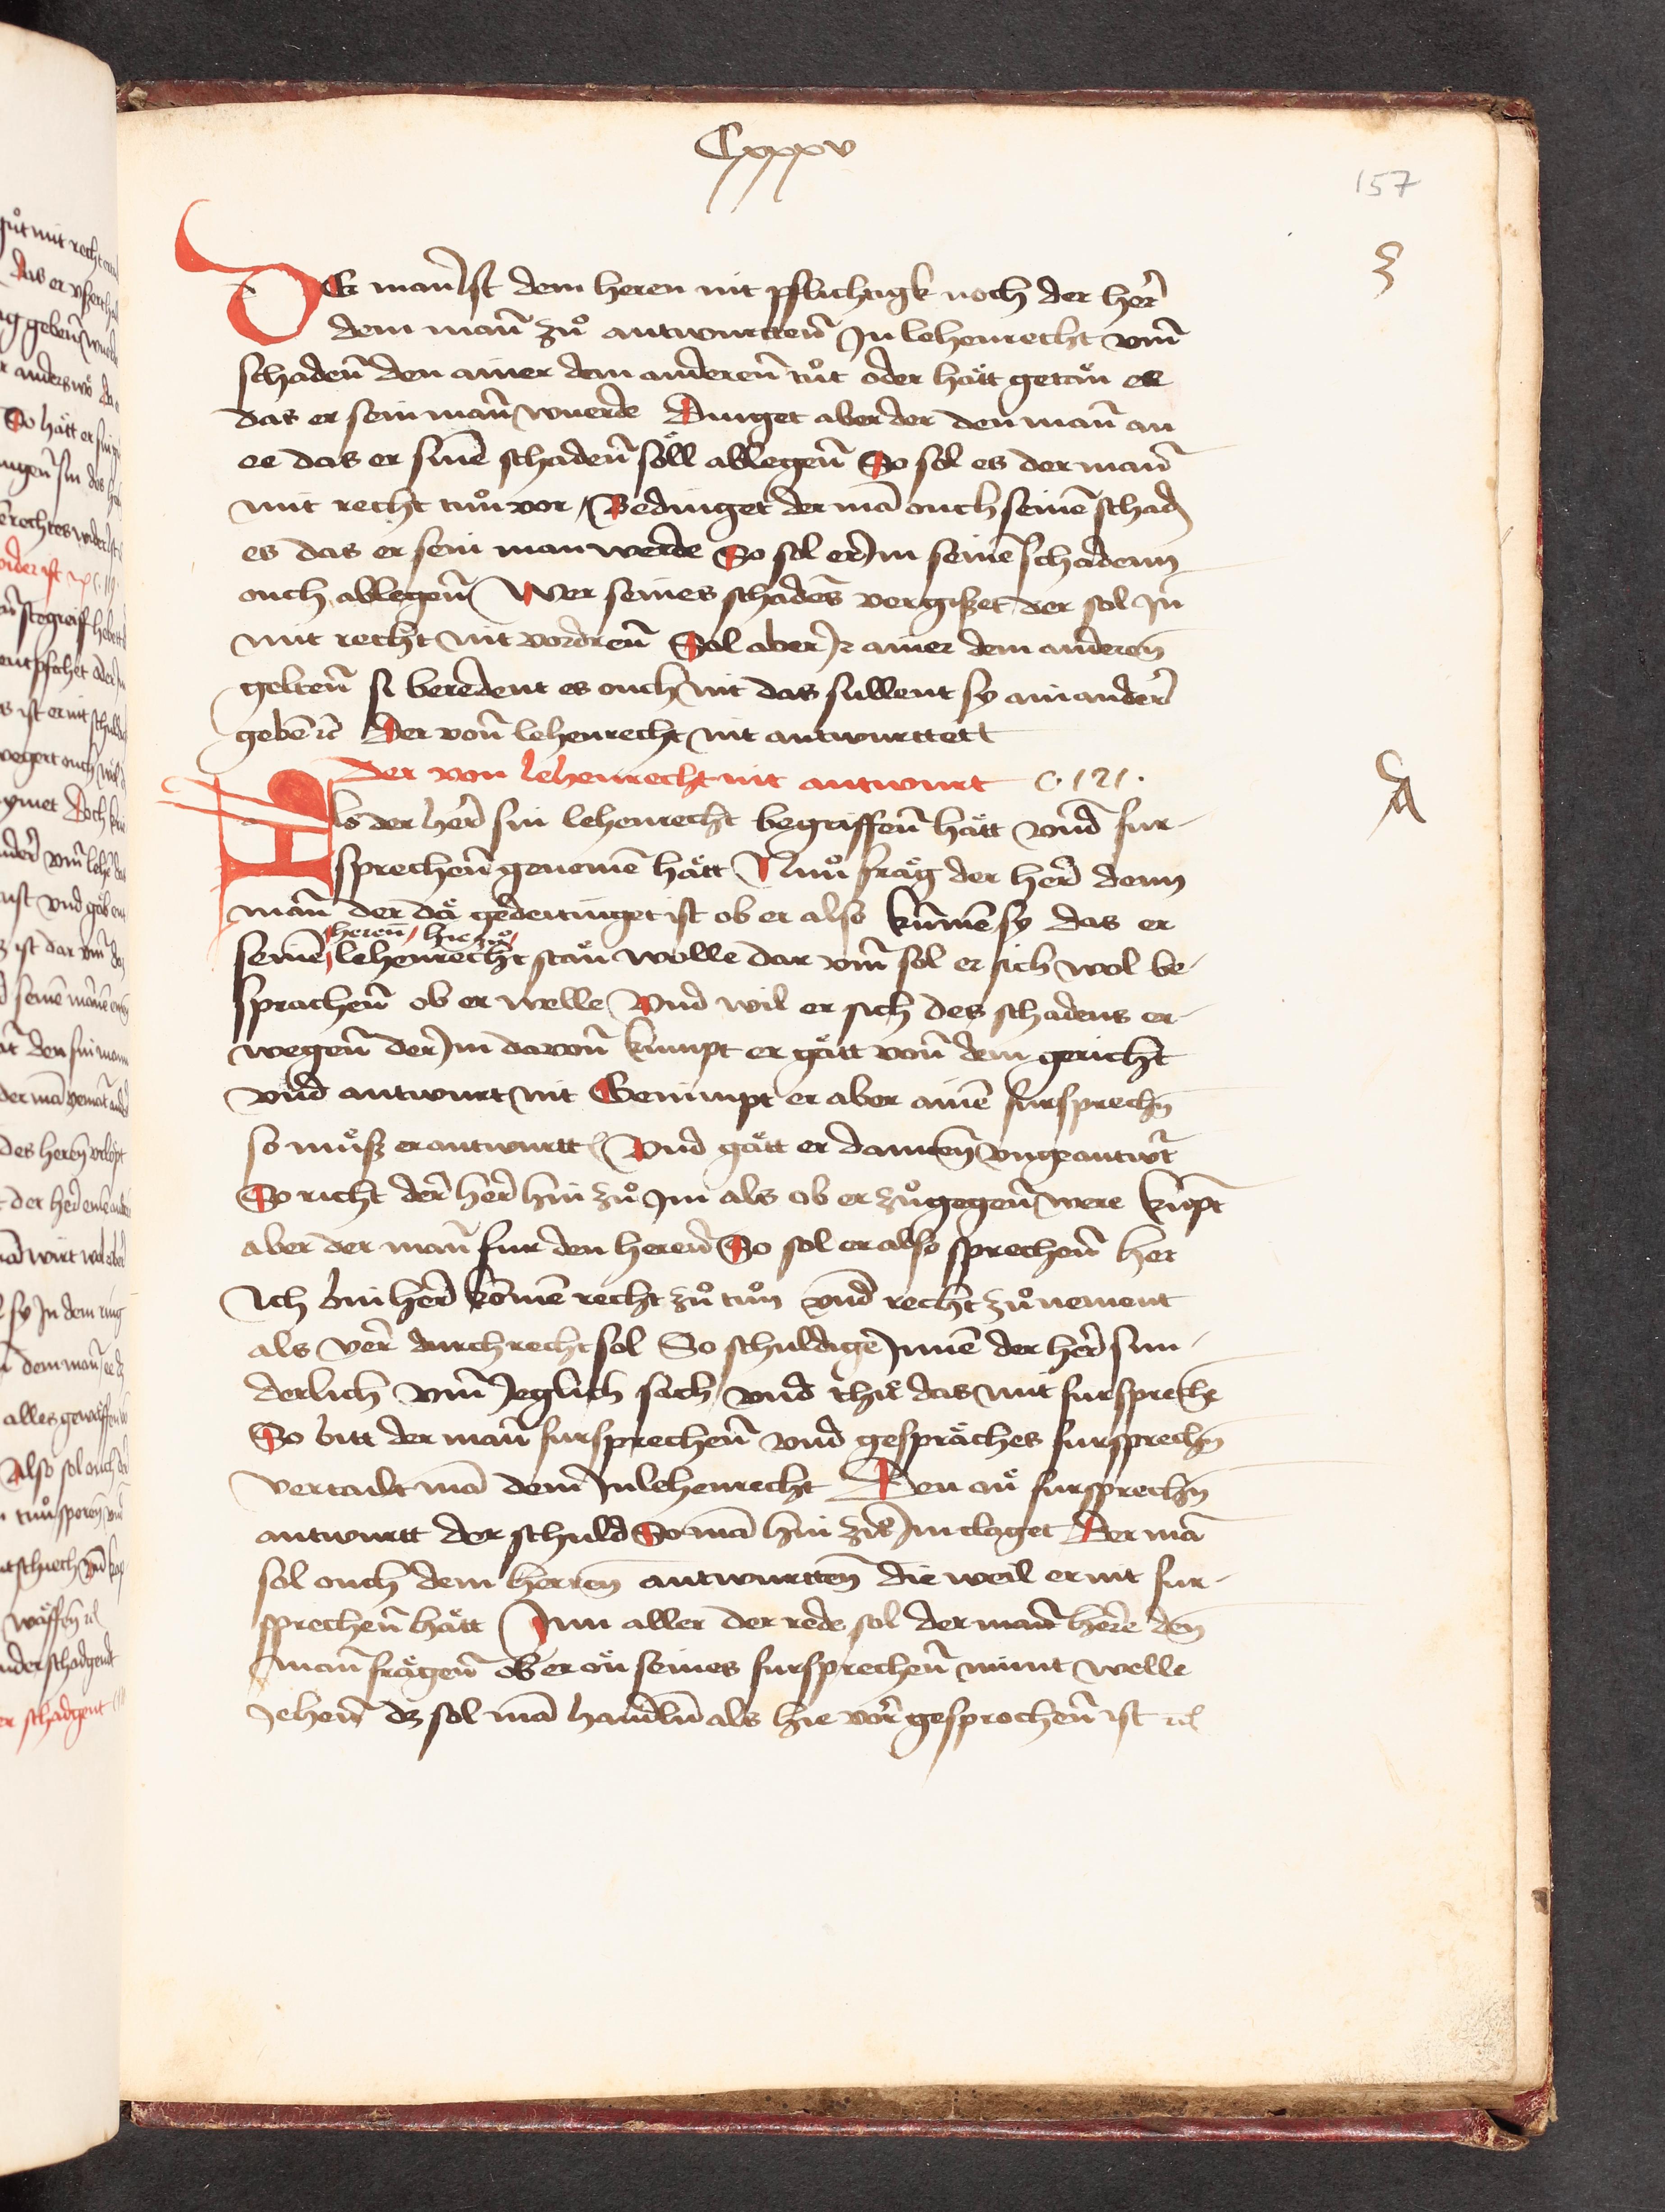 Cxxxv
157
DEr man ist dem heren nit pflichtigk noch der her̄
dem man̄ zuͦ antwurtten̄ Jn lehenrecht vm̄
schaden̄ den ainer dem anderen̄ tuͦt oder haͤtt getaͤn ee
das er sein man̄ wuerde Dinget aber der den man̄ an
ee das er sinē schaden̄ soͤll ablegen̄ So sol es der man̄
mit recht tuͦn vor Bedinget der mā ouch seinē schadn̄
es das er sein man werde So sol er Jm seinē schadenn
ouch ablegen̄ Wer seines schadens̄ vergisset der sol Jn
mit recht nit vordren̄ Sol aber Jr ainer dem anderen̄
gelten̄ si beredent es ouch nit das sullent sy ain ander̄
gebē rc̄ Der von̄ lehenrecht nit antwurttett
Der von lehenrecht nit antwurt C . 121 .
Als der her̄ sin lehenrecht begriffen̄ haͤtt vnd fur-
sprechen̄ genomē haͤtt Nuͦn fraͤg der her̄ denn
man̄ der daͤ gedertinget ist ob er also kūmē sy das er
heren̄ hie zuͦ
seinē lehenrecht staͤn wolle dar vm̄ sol er sich wol be-
sprachen̄ ob er welle Vnd wil er sich des schadens er-
wegen̄ der Jm davon̄ kumpt er gaͤtt von̄ dem gericht
vnd antwurt nit Genimpt er aber ainē fursprechn̄
so muͦsz er antwurttn̄ Vnd gaͤtt er dannen̄ vngeantw̄rt
So richt der her̄ hin zuͦ Jm als ob er zuͦgegen̄ were kūpt
aber der man̄ fur den heren̄ So sol er also sprechen̄ her
Ich bin her̄ komē recht zuͦ tuͦn vnd recht zuͦ nement
als ver̄ durch recht sol So schuldige Jnnē der her̄ sun-
derlich vm̄ Jeglich sach vnd thuͤ das mit fursprechē
So bitt der man̄ fursprechen̄ vnd gespraͤches fursprechn̄
vertailt mā dem Jn lehenrecht Den aͤn fursprechn̄
antwurtt der schuld So mā hin zuͦ Jm claget Der mā
sol ouch dem herren̄ antwurtten̄ die weil er nit fur-
sprechen̄ haͤtt Jnn aller der rede sol der man̄ here den̄
man̄ fraͤgen̄ ob er aͤn seines fursprechen̄ munt welle
Jehen̄ dz sol mā handlū als hie vor̄ gesprochen̄ ist rc̄